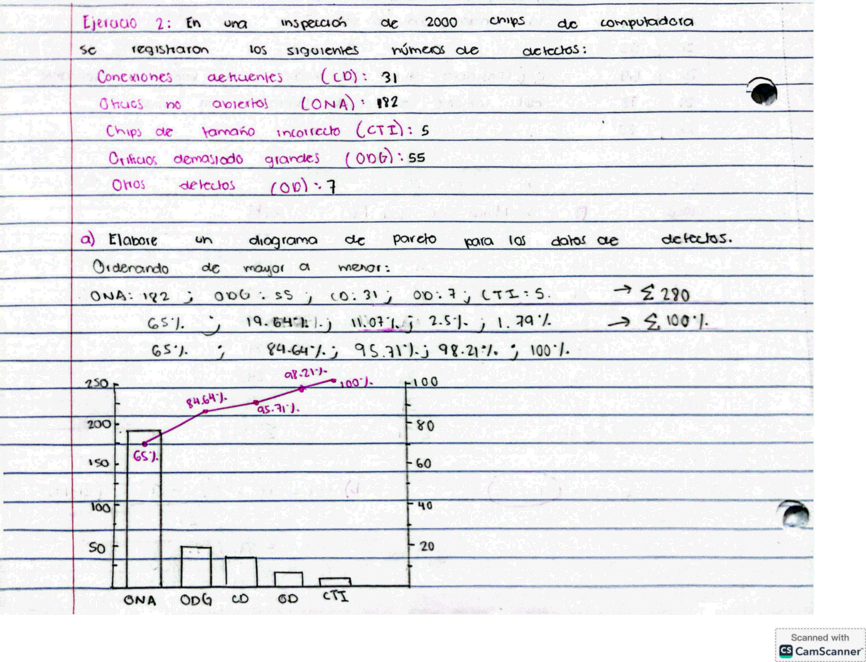 Ejercicio 2: En una inspección de 2000 chips de computadora
se registraron los siguientes números de defectos:
Conexiones deficientes (CD): 31
Orificios no abiertos (ONA): 182
Chips de tamaño incorrecto (CTI): 5
Orificios demasiado grandes (ODG): 55
Otros defectos (OD): 7
a) Elabore un diagrama de pareto para los datos de defectos.
Ordenando de mayor a menor:
ONA: 182 ; ODG: 55 ; CD: 31 ; OD: 7 ; CTI: 5. → Σ 280
65% ; 19.64% ; 11.07% ; 2.5% ; 1.79% → Σ 100%.
65% ; 84.64% ; 95.71% ; 98.21% ; 100%.
250
200
150
100
50
65%
84.64%
95.71%
98.21%
100%
100
80
60
40
20
ONA ODG CD OD CTI
Scanned with
CS CamScanner